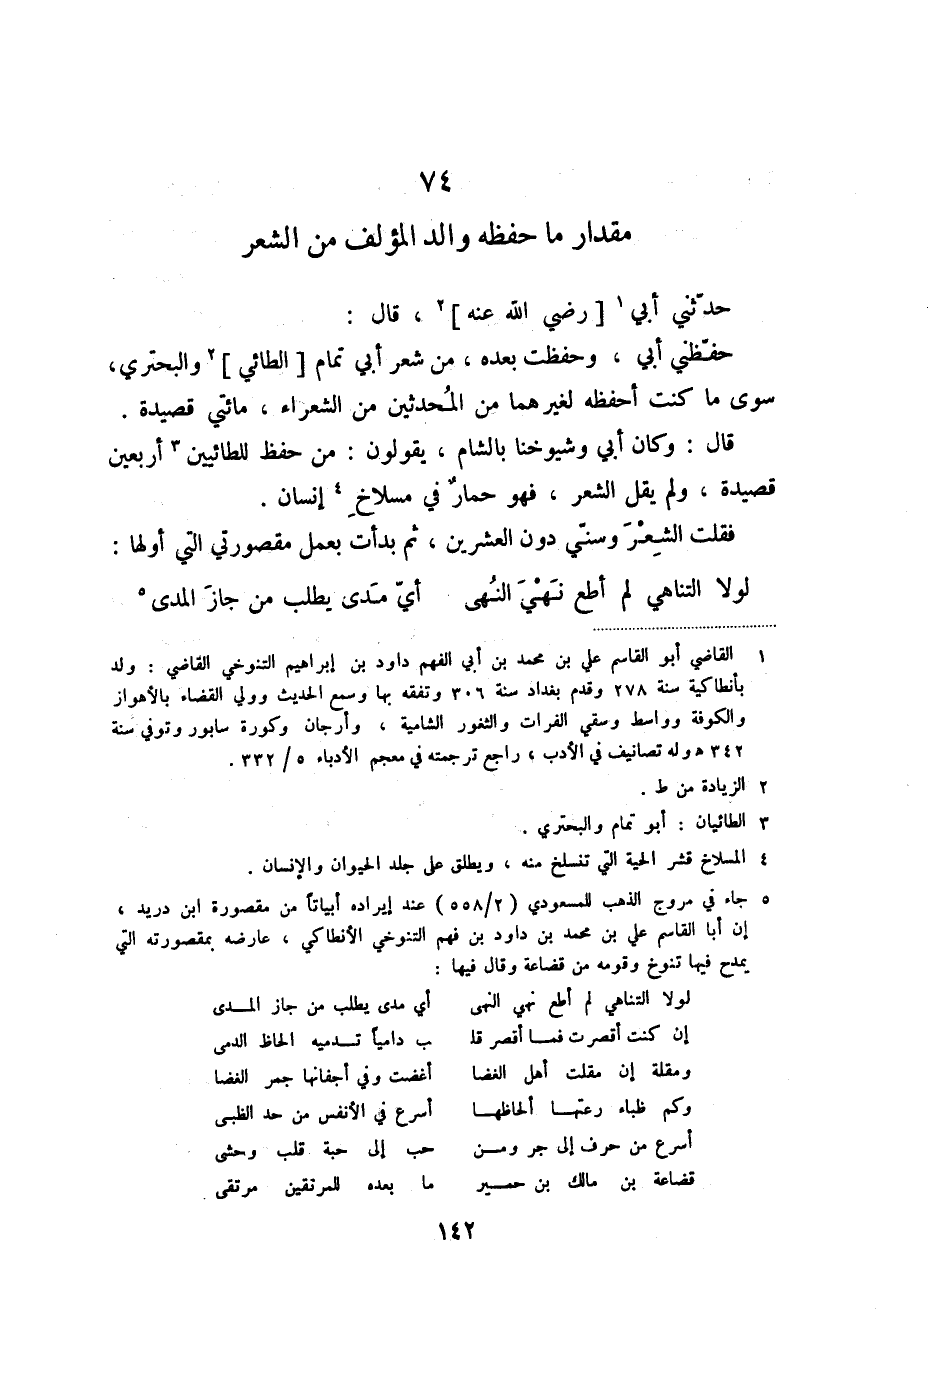 ٧٤
مقدار ما حفظه والد المؤلف من الشعر
حدّثني أبي ١ [ رضي الله عنه ] ٢ ، قال :
حفّظني أبي ، وحفظت بعده ، من شعر أبي تمام [ الطائي ] ٢ والبحتري ،
سوى ما كنت أحفظه لغيرهما من المُحدثين من الشعراء ، مائتي قصيدة .
قال : وكان أبي وشيوخنا بالشام ، يقولون : من حفظ للطائيين ٣ أربعين
قصيدة ، ولم يقل الشعر ، فهو حمارٌ في مسلاخِ ٤ إنسان .
فقلت الشِعْرَ وسنّي دون العشرين ، ثم بدأت بعمل مقصورتي التي أولها :
لولا التناهي لم أطع نَهْيَ النُهى أيّ مَدى يطلب من جازَ المدى ٥
١ القاضي أبو القاسم علي بن محمد بن أبي الفهم داود بن إبراهيم التنوخي القاضي : ولد
بأنطاكية سنة ٢٧٨ وقدم بغداد سنة ٣٠٦ وتفقه بها وسمع الحديث وولي القضاء بالأهواز
والكوفة وواسط وسقي الفرات والثغور الشامية ، وأرجان وكورة سابور وتوفي سنة
٣٤٢ ه وله تصانيف في الأدب ، راجع ترجمته في معجم الأدباء ٥ / ٣٣٢ .
٢ الزيادة من ط .
٣ الطائيان : أبو تمام والبحتري .
٤ المسلاخ قشر الحية التي تنسلخ منه ، ويطلق على جلد الحيوان والإنسان .
٥ جاء في مروج الذهب للمسعودي ( ٢/ ٥٥٨ ) عند إيراده أبياتاً من مقصورة ابن دريد ،
إن أبا القاسم علي بن محمد بن داود بن فهم التنوخي الأنطاكي ، عارضه بمقصورته التي
يمدح فيها تنوخ وقومه من قضاعة وقال فيها :
لولا التناهي لم أطع نهي النهى أي مدى يطلب من جاز المــدى
إن كنت أقصرت فمــا أقصر قلـ ـب دامياً تــدميه الحاظ الدمى
ومقلة إن مقلت أهل الغضا أغضت وفي أجفانها جمر الغضا
وكم ظباء رعتهــا ألحاظهــا أسرع في الأنفس من حد الظبى
أسرع من حرف إلى جر ومــن حب إلى حبة قلب وحشى
قضاعة بن مالك بن حمــير ما بعده للمرتقين مرتقى .
١٤٢